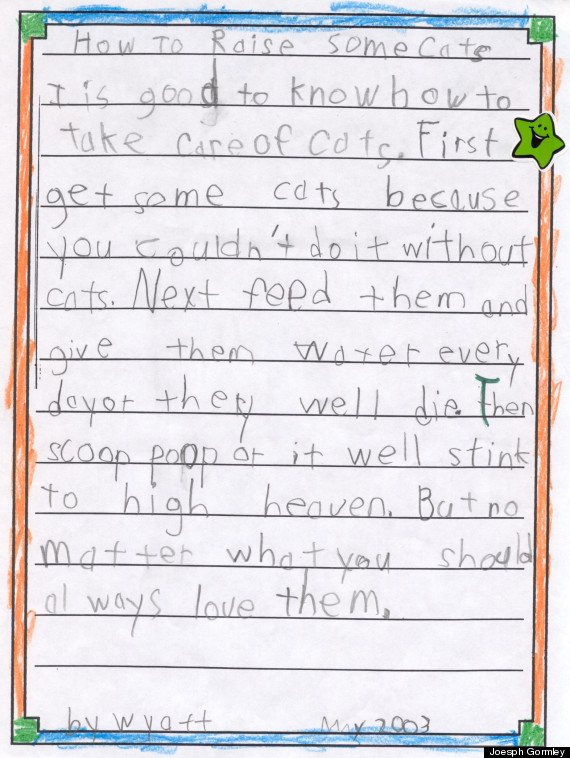 How To Raise some Cats
I is good to know how to
take care of cats. First
get some cats because
you couldn't do it without
cats. Next feed them and
give them water every
day or they well die. Then
scoop poop or it well stink
to high heaven. But no
matter what you should
always love them.
by Wyatt May 2003
Joesph Gormley